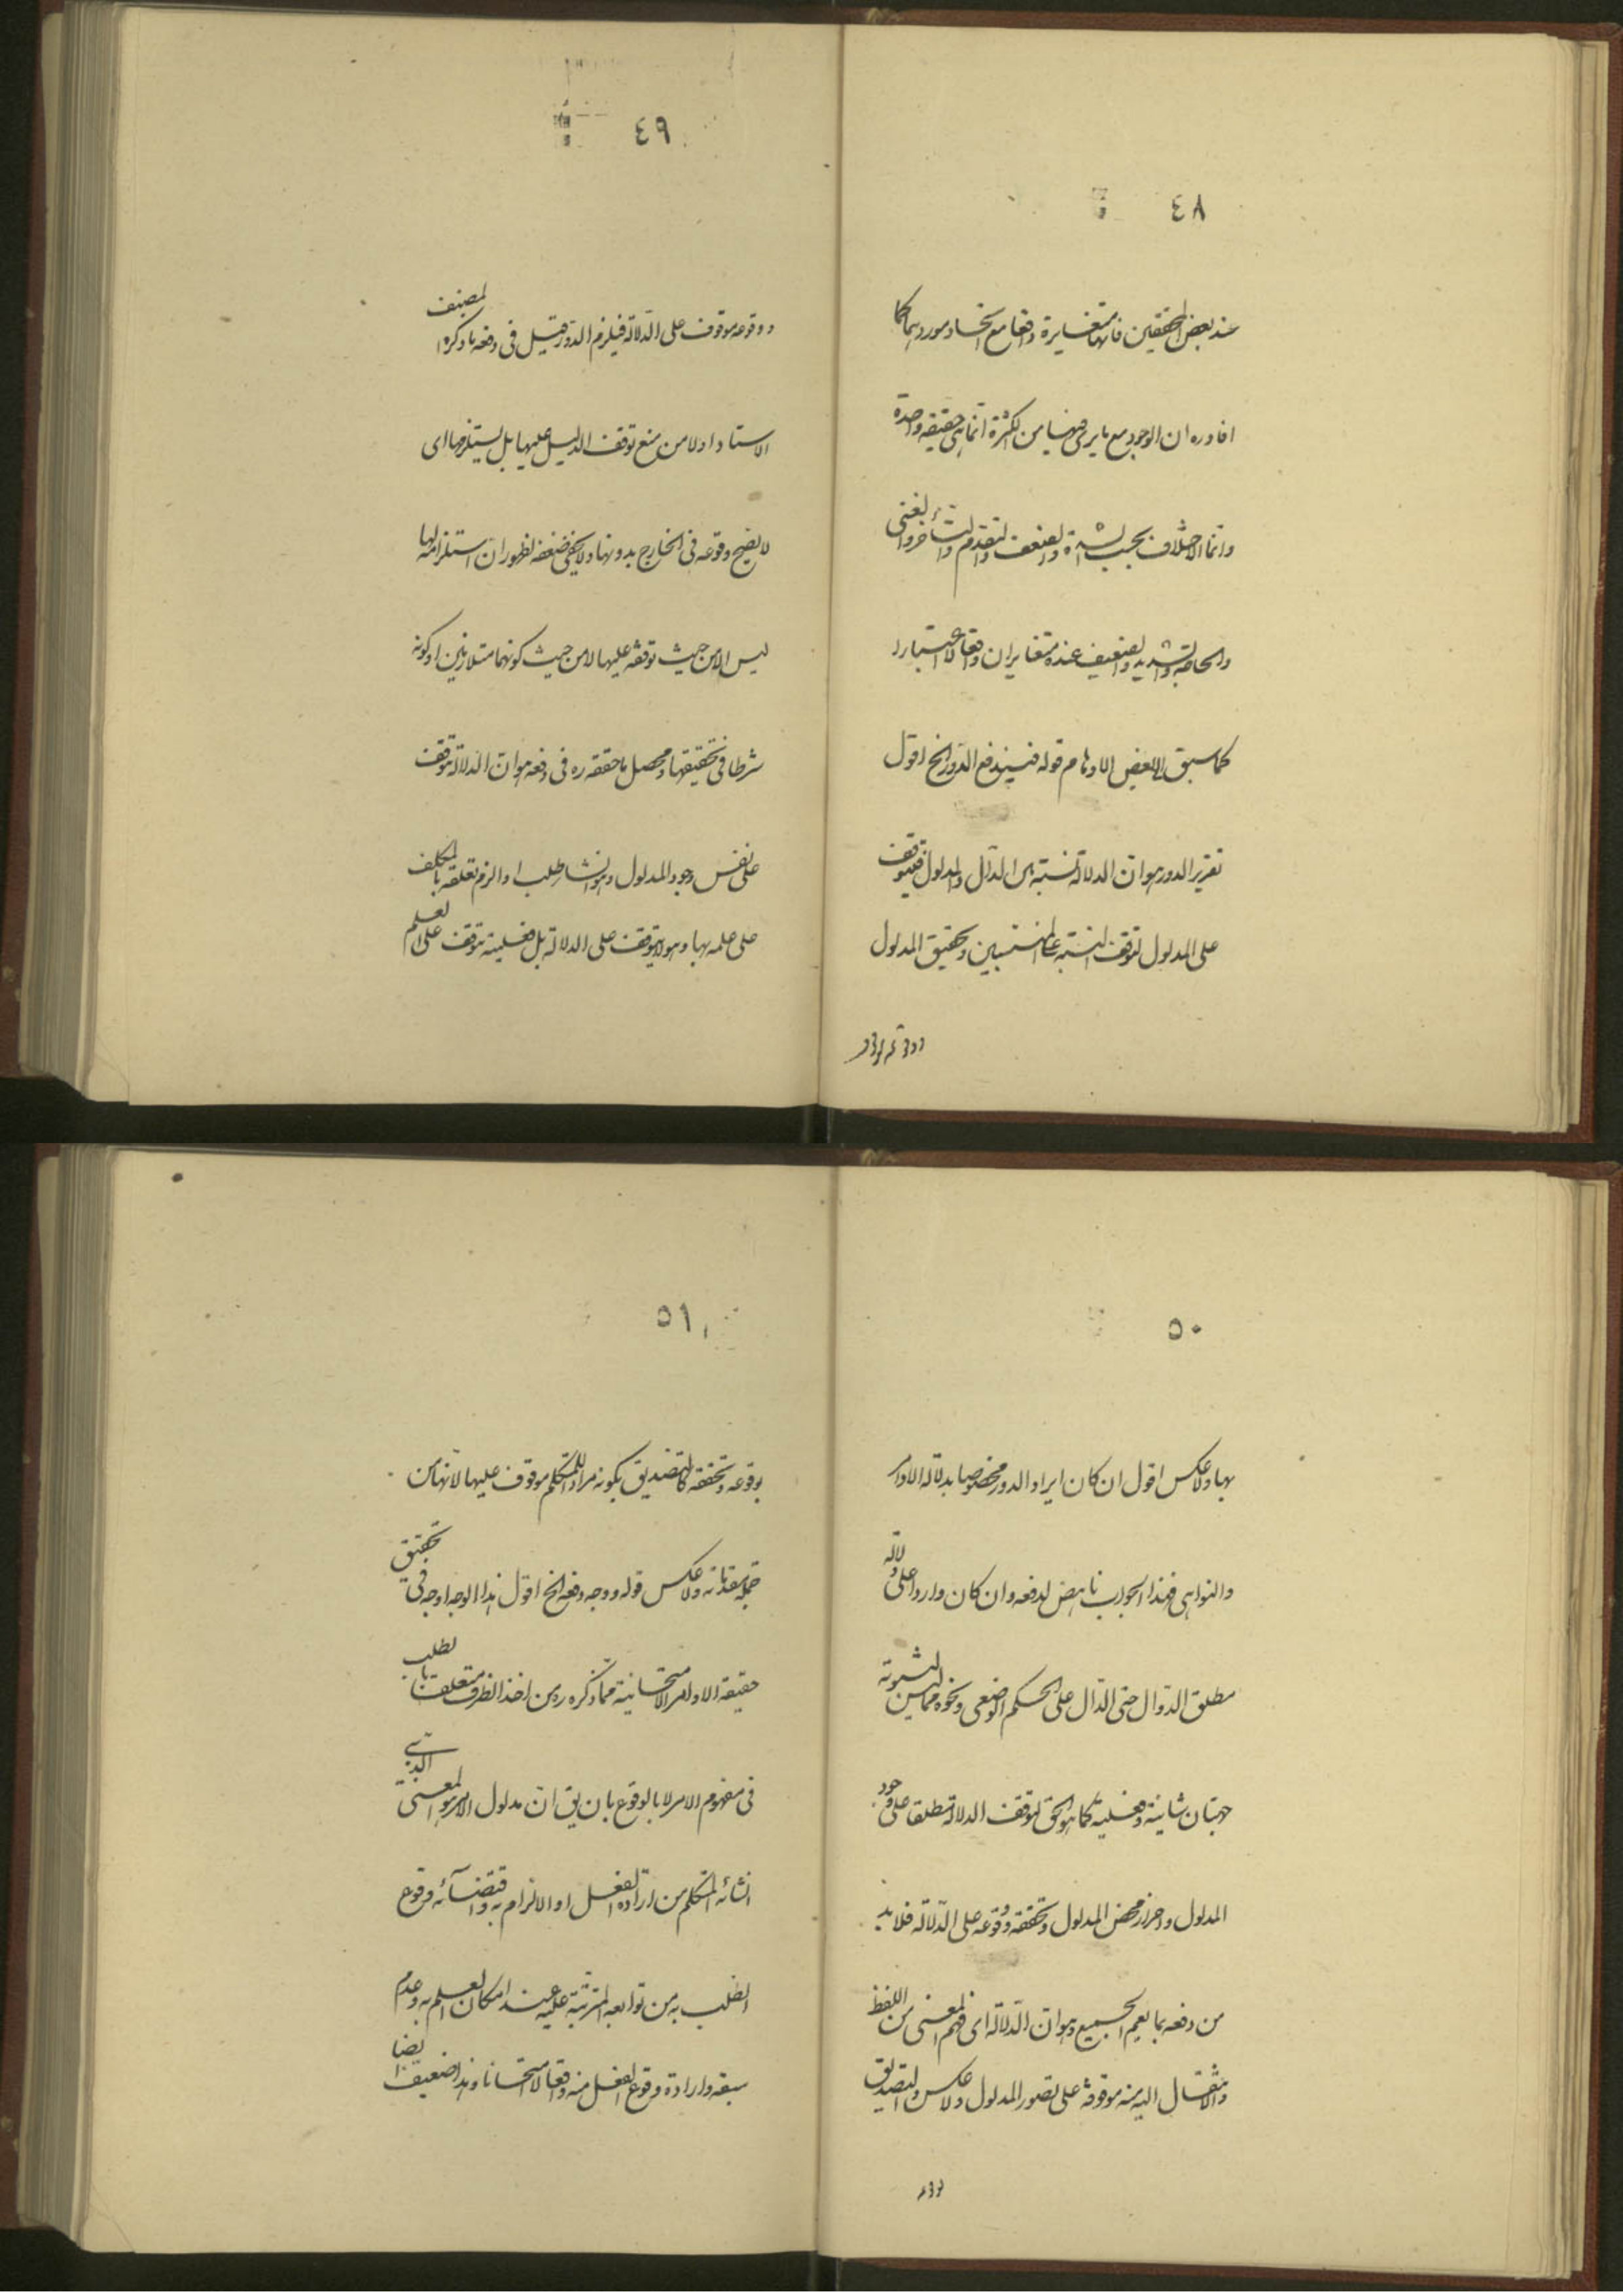 ٤٨
عند بعض المحققين فانها متغايرة واقعا مع اتحاد موردهما كما
افاده ره ان الوجود مع ما يرى فيها من الكثرة انما هي حقيقة واحدة
وانما الاختلاف بحسب الشدة والضعف والتقدم والتأخر والغنى
والحاجة والتشديد والضعيف عنده متغايران واقعا لا اعتبارا
كما سبق الى بعض الاوهام قوله فيندفع الدور الخ اقول
تقرير الدور هو ان الدلالة نسبة بين الدال والمدلول فيتوقف
على المدلول لتوقف النسبة على المنتسبين وتحقيق المدلول
ووقوعه
٤٩
ووقوعه موقوف على الدلالة فيلزم الدور قيل في دفعه ما ذكره المصنف
الاستاد اولا من منع توقف الدليل عليها بل يستلزمها اى
لا يصح وقوعه في الخارج بدونها ولا يخفى ضعفه لظهور ان استلزامه لها
ليس الا من حيث توقفه عليها لا من حيث كونهما متلازمين او كونه
شرطا في تحقيقها ومحصل ما حققه ره في دفعه هو ان الدلالة موقوفة
على نفس وجود المدلول وهو انشاء طلب او الزم تعلقه بالمكلف
على علمه بها وهو لا يتوقف على الدلالة بل فعليته تتوقف على العلم
٥٠
بها ولا عكس اقول ان كان ايراد الدور مخصوصا بدلالة الاوامر
والنواهى فهذا الجواب ناهض لدفعه وان كان واردا على دلالة
مطلق الدوال حتى الدال على الحكم الوضعى ونحوه مما ليس لثبوته
جهتان شانية وفعلية كما هو الحق لتوقف الدلالة مطلقا على وجود
المدلول واحراز محض المدلول وتحققه ووقوعه على الدلالة فلا بد
من دفعه بما يعم الجميع وهو ان الدلالة اى فهم المعنى من اللفظ
والانتقال اليه منه موقوفة على تصور المدلول ولا عكس والتصديق
٥١
بوقوعه وتحققه كالتصديق بكونه مرادا للمتكلم موقوف عليها لانها من
جملة مقدماته ولا عكس قوله ووجه دفعه الخ اقول هذا الوجه اوجه في تحقيق
حقيقة الاوامر الامتحانية مما ذكره ره من اخذ الظرف متعلقا بالطلب
في مفهوم الامر لا بالوقوع بان يق ان مدلول الامر هو المعنى الذى
انشائه المتكلم من ارادة الفعل او الالزام به واقتضائه وقوع
الطلب به من توابعه المترتبة عليه عند امكان العلم به وعدم
سبقه وارادة وقوع الفعل منه واقعا لا امتحانا وهذا ضعيف ايضا